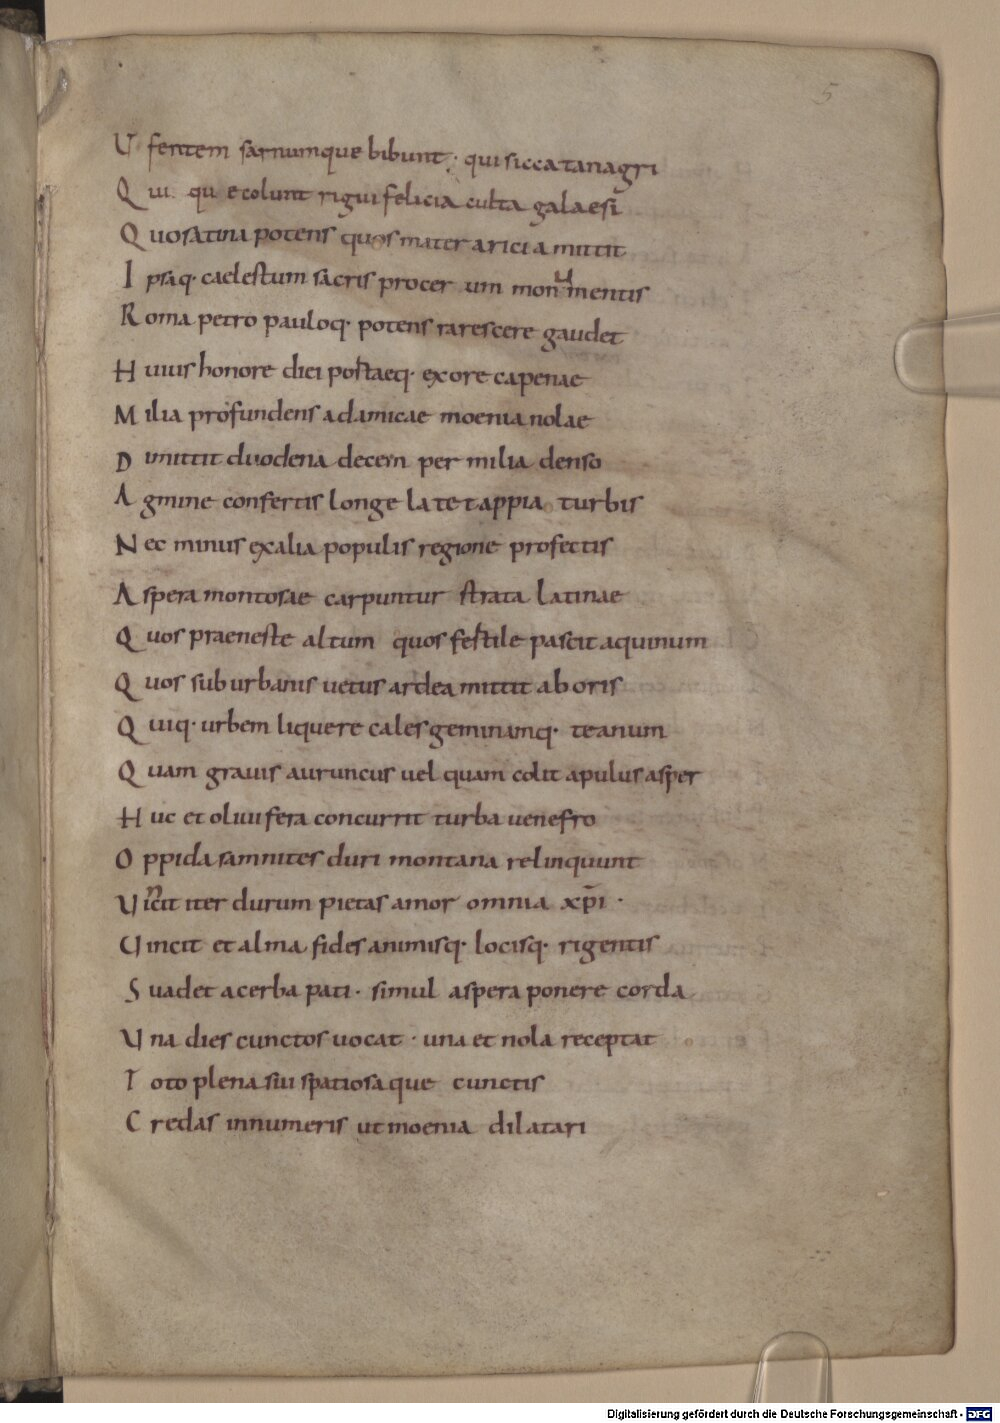 5
Ufentem sarnumque bibunt· qui sicca tanagri
Qui qu e colunt rigui felicia culta galaesi
Quos atina potens quos mater aricia mittit
Ipsaq· caelestum sacris procerum monumentis
Roma petro pauloq· potens rarescere gaudet
Huius honore diei postaeq· ex ore capenae
Milia profundens ad amicae moenia nolae
Dimittit duodena decem per milia denso
Agmine confertis longe latet appia turbis
Nec minus ex alia populis regione profectis
Aspera montosae carpuntur strata latinae
Quos praeneste altum quos festile pascit aquinum
Quos suburbanis uetus ardea mittit ab oris
Quiq· urbem liquere cales geminamq· teanum
Quam grauis auruncus uel quam colit apulus asper
Huc et oliuifera concurrit turba uenefro
Oppida samnites duri montana relinquunt
Uincit iter durum pietas amor omnia xp̄i·
Uincit et alma fides animisq· locisq· rigentis
Suadet acerba pati· simul aspera ponere corda
Una dies cunctos uocat· una et nola receptat
Toto plena sui spatiosaque cunctis
Credas innumeris ut moenia dilatari
Digitalisierung gefördert durch die Deutsche Forschungsgemeinschaft - DFG